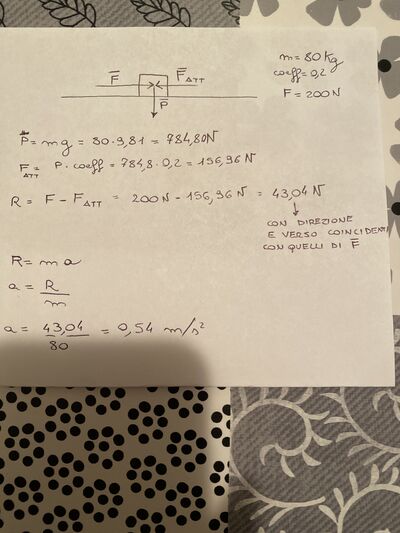 m = 80 Kg
coeff = 0,2
F = 200 N
F̅
F̅ATT
P
P̅ = mg = 80 · 9,81 = 784,80N
FATT = P · coeff = 784,8 · 0,2 = 156,96 N
R = F - FATT = 200N - 156,96 N = 43,04 N
CON DIREZIONE
E VERSO COINCIDENTI
CON QUELLI DI F̅
R = m a
a = R/m
a = 43,04/80 = 0,54 m/s²